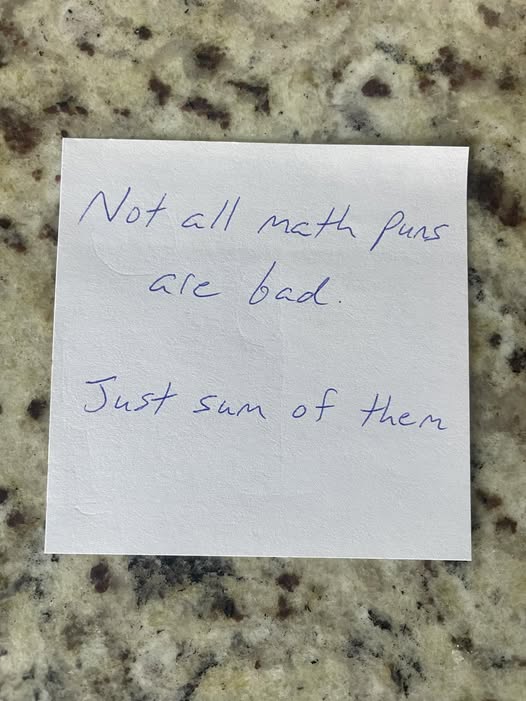 Not all math puns
are bad.
Just sum of them